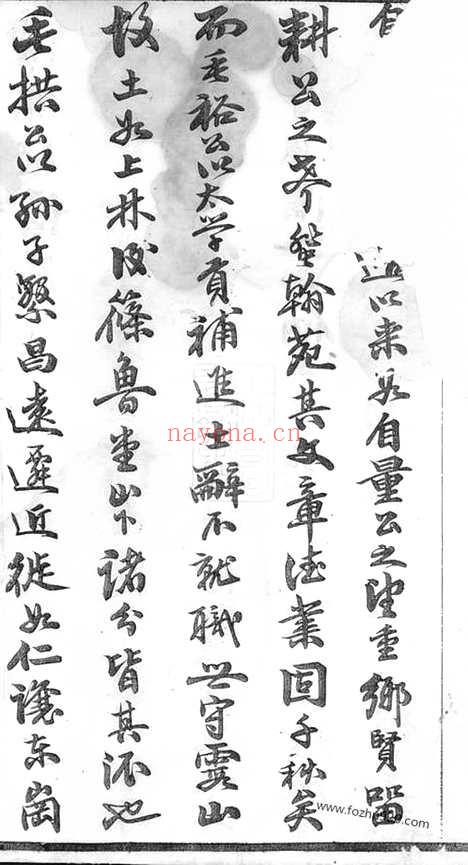 自
迆以来如自量公之望重鄉賢㽞
耕公之登翰苑其文章德業固千秋矣
而垂裕公以太学貢補進士辭不就職世守霞山
故土如上林後篠魯堂山下諸分皆其派也
垂拱公以孙子繁昌遠遷近徙如仁讓东崗
nayona.cn
www.fozhu920.com